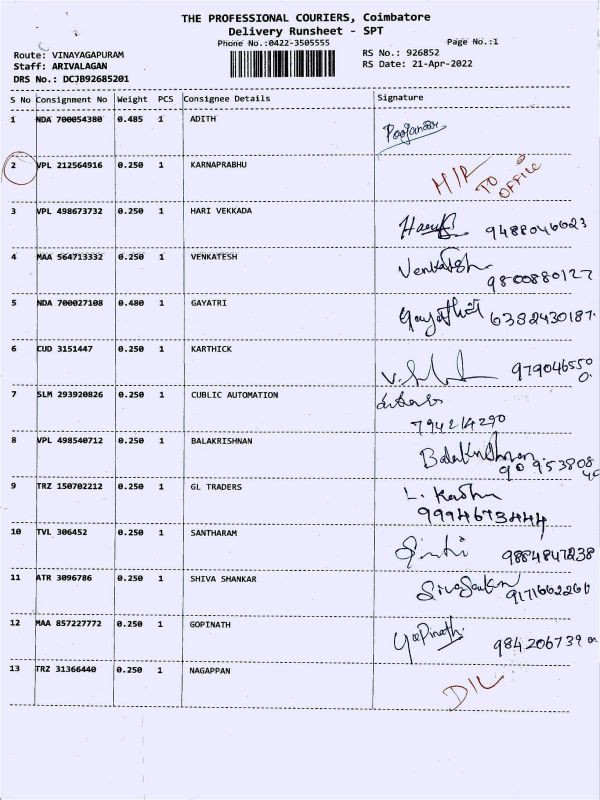 THE PROFESSIONAL COURIERS, Coimbatore
Delivery Runsheet - SPT
Phone No.:0422-3505555 Page No.:1
Route: VINAYAGAPURAM RS No.: 926852
Staff: ARIVALAGAN RS Date: 21-Apr-2022
DRS No.: DCJB92685201
S No Consignment No Weight PCS Consignee Details Signature
1 NDA 700054380 0.485 1 ADITH
2 VPL 212564916 0.250 1 KARNAPRABHU TO OFFICE
3 VPL 498673732 0.250 1 HARI VEKKADA 9488046623
4 MAA 564713332 0.250 1 VENKATESH Venkatesh 9800880127
5 NDA 700027108 0.480 1 GAYATRI Gayathri 6382430187.
6 CUD 3151447 0.250 1 KARTHICK 979046550
7 SLM 293920826 0.250 1 CUBLIC AUTOMATION
8 VPL 498540712 0.250 1 BALAKRISHNAN Balakrishnan
9 TRZ 150702212 0.250 1 GL TRADERS 9994673444
10 TVL 306452 0.250 1 SANTHARAM 9884847238
11 ATR 3096786 0.250 1 SHIVA SHANKAR
12 MAA 857227772 0.250 1 GOPINATH Gopinath
13 TRZ 31366440 0.250 1 NAGAPPAN D/L